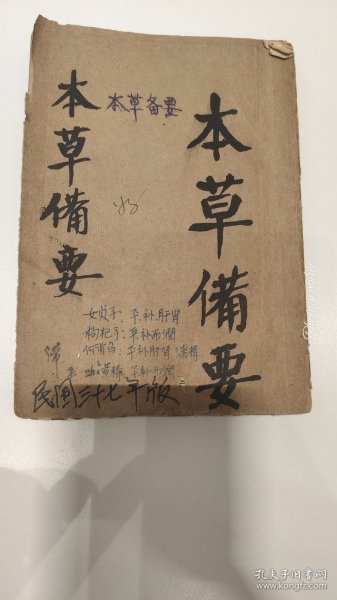 本草備要
本草备要
本草備要
女贞子：平补肝肾
枸杞子：平补而润
何首乌：平补肝肾
平补而润
民国三十七年版
孔夫子旧书网